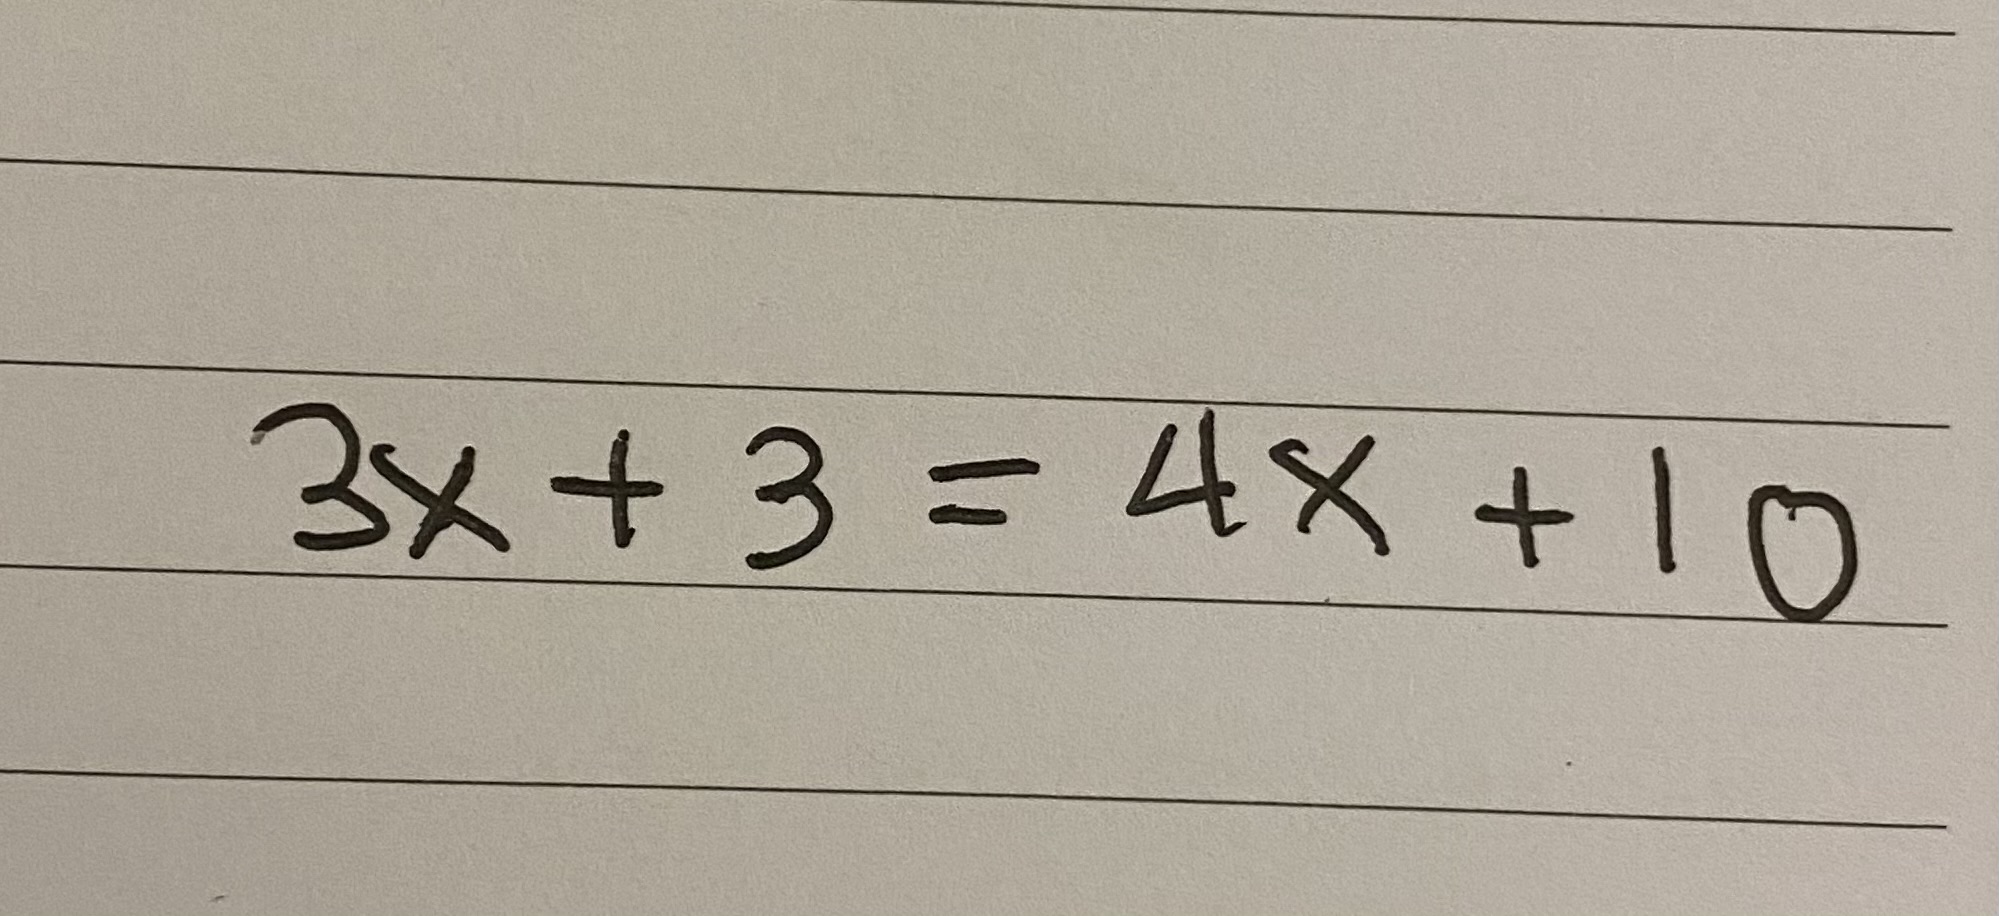 3x + 3 = 4x + 10